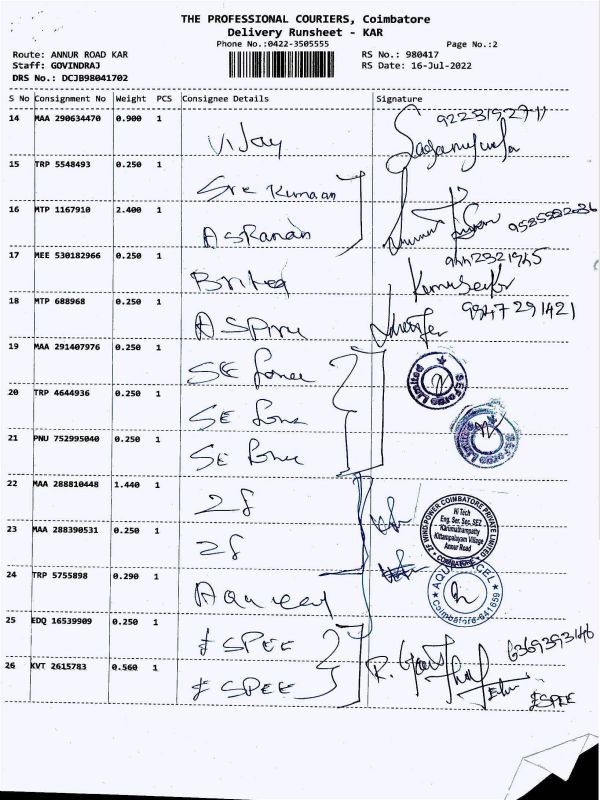 THE PROFESSIONAL COURIERS, Coimbatore
Delivery Runsheet - KAR
Phone No.:0422-3505555
Page No.:2
Route: ANNUR ROAD KAR
RS No.: 980417
Staff: GOVINDRAJ
RS Date: 16-Jul-2022
DRS No.: DCJB98041702
S No Consignment No Weight PCS Consignee Details Signature
14 MAA 290634470 0.900 1
Vijay
15 TRP 5548493 0.250 1
Sre Kumaan
16 MTP 1167910 2.400 1
9585592036
17 MEE 530182966 0.250 1
9442321945
18 MTP 688968 0.250 1
9347291421
19 MAA 291407976 0.250 1
SE
SE Forge Limited
20 TRP 4644936 0.250 1
SE
21 PNU 752995040 0.250 1
SE
22 MAA 288810448 1.440 1
ZF
ZF WIND POWER COIMBATORE PRIVATE LIMITED
Hi Tech
Eng. Ser. Sec. SEZ
Karumathampatty
Kittampalayam Village
Annur Road
COIMBATORE
23 MAA 288390531 0.250 1
ZF
24 TRP 5755898 0.290 1
Coimbatore-641659
25 EDQ 16539909 0.250 1
£ SPEE
6369393146
26 KVT 2615783 0.560 1
£ SPEE
£SPEE